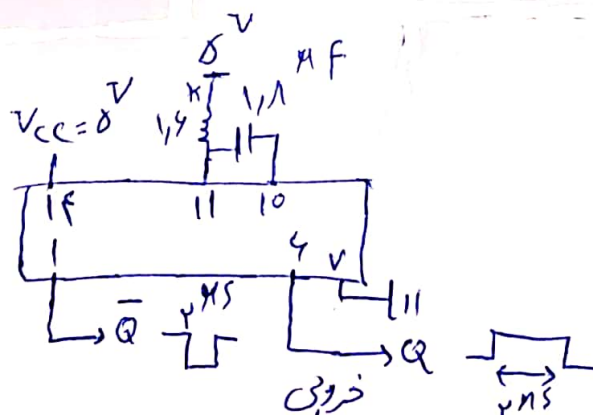 ۵V
۱٫۸ μF
VCC = ۵V
۱٫۶ K
۱۴ ۱۱ ۱۰
۱ ۶ ۷
Q̅ ۲ μs
Q
خروجی
۲ μs